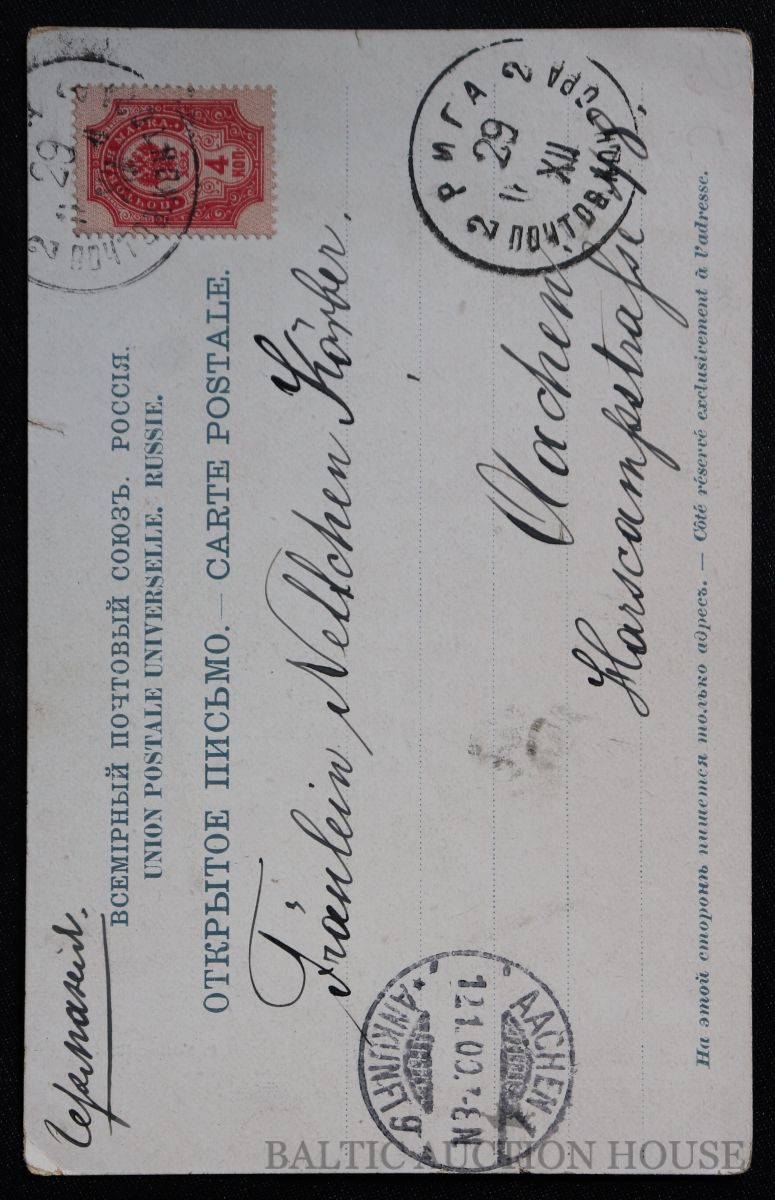 Германия.
ВСЕМІРНЫЙ ПОЧТОВЫЙ СОЮЗЪ. РОССІЯ.
UNION POSTALE UNIVERSELLE. RUSSIE.
ОТКРЫТОЕ ПИСЬМО. — CARTE POSTALE.
ПОЧТОВАЯ МАРКА
4 КОП
29
2 ПОЧТОВ
РИГА
29 XII
2 ПОЧТОВ. 2
Fräulein Nettchen Körber.
Aachen,
Harscampstraße
AACHEN 1
12.1.00.2-3N
ANKUNFT
На этой сторонѣ пишется только адресъ. — Côté réservé exclusivement à l'adresse.
BALTIC AUCTION HOUSE